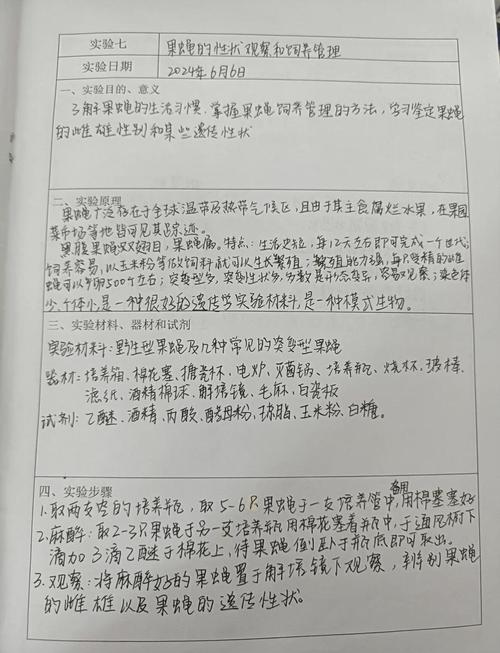 实验七 果蝇的性状观察和饲养管理
实验日期 2024年6月6日
一、实验目的、意义
了解果蝇的生活习惯、掌握果蝇饲养管理的方法，学习鉴定果蝇
的雌雄性别和某些遗传性状
二、实验原理
果蝇广泛存在于全球温带及热带气候区，且由于其主食腐烂水果，在果园
菜市场等地皆可见其踪迹。
黑腹果蝇双翅目，果蝇属。特点：生活史短，每12天左右即可完成一个世代；
饲养容易，以玉米粉等做饲料就可以生长繁殖；繁殖能力强，每只受精的雌
蝇可以产卵500个左右；突变型多，突变性状多，多数是形态变异，容易观察；染色体
少，个体小，是一种很好的遗传学实验材料，是一种模式生物。
三、实验材料、器材和试剂
实验材料：野生型果蝇及几种常见的突变型果蝇
器材：培养箱、棉花塞、搪瓷杯、电炉、灭菌锅、培养瓶、烧杯、玻棒、
滤纸、酒精棉球、解剖镜、毛麻、白瓷板
试剂：乙醚、酒精、丙酸、酵母粉、琼脂、玉米粉、白糖。
四、实验步骤
备用
1.取两支空的培养瓶，取5-6只果蝇于一支培养管中，用棉塞塞好
2.麻醉：取2-3只果蝇于另一支培养瓶用棉花塞着瓶中，于通风橱下
滴加3滴乙醚于棉花上，待果蝇倒卧于瓶底即可取出。
3.观察：将麻醉好的果蝇置于解剖镜下观察，辨别果蝇
的雌雄以及果蝇的遗传性状。